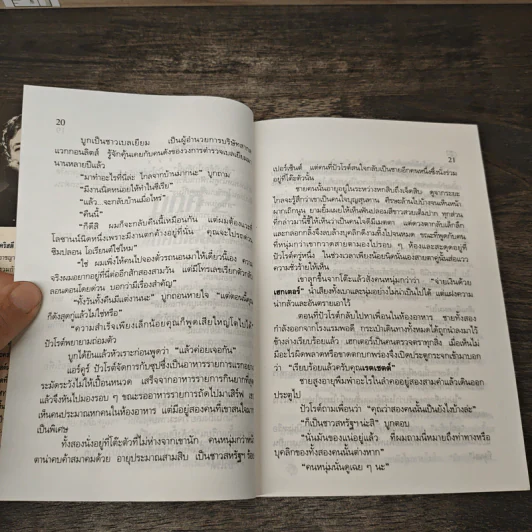 20
บูกเป็นชาวเบลเยียม เป็นผู้อำนวยการบริษัท
แวกกอนลิตส์ รู้จักคุ้นเคยกับคนดังของวงการตำรวจเบลเยียม
นานหลายปีแล้ว
“มาทำอะไรที่นี่ล่ะ ไกลจากบ้านมากนะ” บูกถาม
“มีงานนิดหน่อยให้ทำในซีเรีย”
“แล้ว...จะกลับบ้านเมื่อไหร่”
“คืนนี้”
“ก็ดีสิ ผมก็จะกลับคืนนี้เหมือนกัน แต่ผมต้องแวะ
โลซานน์นิดหนึ่งเพราะมีงานตกค้างอยู่ที่นั่น คุณจะไปรถด่วน
ซิมปลอน โอเรียนต์ใช่ไหม”
“ใช่ ผมเพิ่งให้คนไปจองตั๋วรถนอนมาให้เดี๋ยวนี้เอง ความ
จริงผมอยากอยู่ที่นี่ต่ออีกสักสองสามวัน แต่มีโทรเลขเรียกตัวกลับ
ลอนดอนโดยด่วน บอกว่ามีเรื่องสำคัญ”
“ทั้งวันทั้งคืนมีแต่งานนะ” บูกถอนหายใจ “แต่ตอนนี้คุณ
ก็ดังสุดกู่แล้วไม่ใช่หรือ”
“ความสำเร็จเพียงเล็กน้อยคุณก็พูดเสียใหญ่โตไปได้”
ปัวโรต์พยายามถ่อมตัว
บูกได้ยินแล้วหัวเราะก่อนพูดว่า “แล้วค่อยเจอกัน”
แอร์คูร์ ปัวโรต์จัดการกับซุปซึ่งเป็นอาหารรายการแรกอย่าง
ระมัดระวังไม่ให้เปื้อนหนวด เสร็จจากอาหารรายการกินยากที่สุด
แล้วจึงหันไปมองรอบ ๆ ขณะรออาหารรายการถัดไปมาเสิร์ฟ
เห็นคนประมาณหกคนในห้องอาหาร แต่มีอยู่สองคนที่เขาสนใจ
เป็นพิเศษ
ทั้งสองนั่งอยู่ที่โต๊ะตัวที่ไม่ห่างจากเขานัก คนหนุ่มกว่า
ตาน่าคบค้าสมาคมด้วย อายุประมาณสามสิบ เป็นชาวสหรัฐฯ ร้อย
21
เปอร์เซ็นต์ แต่คนที่ปัวโรต์สนใจกลับเป็นชายอีกคนหนึ่งซึ่งนั่งร่วม
อยู่ที่โต๊ะตัวนั้น
ชายคนนั้นอายุอยู่ในระหว่างหกสิบถึงเจ็ดสิบ ดูจากระยะ
ไกลจะรู้สึกว่าเขาเป็นคนใจบุญสุนทาน ศีรษะล้านไปบ้างจนเห็นหน้า
ผากเถิกนูน ยามยิ้มเผยให้เห็นฟันปลอมสีขาวสวยเต็มปาก ทุกส่วน
ที่กล่าวมานี้ชี้ให้เห็นว่าเป็นคนใจดีมีเมตตา แต่ดวงตากลับเล็กลึก
และกลอกกลิ้งจึงลบล้างบุคลิกดีงามทิ้งไปจนหมด ขณะที่พูดกับคน
ที่หนุ่มกว่าเขากวาดสายตามองไปรอบ ๆ ห้องและสะดุดอยู่ที่
ปัวโรต์ครู่หนึ่ง ในช่วงเวลาเพียงน้อยนิดนั้นเองสายตาคู่นั้นส่อแวว
ความชั่วร้ายให้เห็น
เขาลุกขึ้นจากโต๊ะแล้วสั่งคนหนุ่มกว่า “จ่ายเงินด้วย
เฮกเตอร์” น้ำเสียงทั้งเบาและนุ่มอย่างไม่น่าเป็นไปได้ แต่แฝงความ
น่ากลัวและอันตรายเอาไว้
ตอนที่ปัวโรต์กลับไปหาเพื่อนในห้องอาหาร ชายทั้งสอง
กำลังออกจากโรงแรมพอดี กระเป๋าเดินทางทั้งหมดได้ถูกนำลงมาไว้
ข้างล่างเรียบร้อยแล้ว เฮกเตอร์เป็นคนตรวจตราทุกสิ่ง เมื่อเห็นไม่
มีอะไรผิดพลาดหรือขาดตกบกพร่องจึงเปิดประตูกระจกเข้ามาบอก
ว่า “เรียบร้อยแล้วครับคุณแรตเชตต์”
ชายสูงอายุพึมพำอะไรในลำคออยู่สองสามคำแล้วเดินออก
ประตูไป
ปัวโรต์ถามเพื่อนว่า “คุณว่าสองคนนั้นเป็นยังไงบ้างล่ะ”
“ก็เป็นชาวสหรัฐฯ น่ะสิ” บูกตอบ
“นั่นมันของแน่อยู่แล้ว ที่ผมถามนี่หมายถึงท่าทางหรือ
บุคลิกของทั้งสองคนนั้นต่างหาก”
“คนหนุ่มนั่นดูเฉย ๆ นะ”